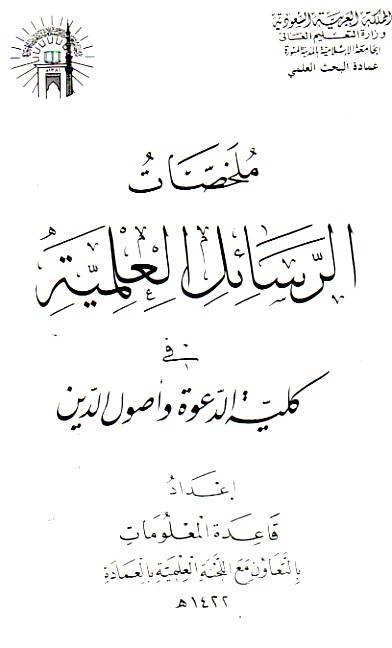 المملكة العربية السعودية
وزارة التعليم العالي
الجامعة الإسلامية بالمدينة المنورة
عمادة البحث العلمي
مُلَخَّصَاتُ
الرَّسَائِلِ العِلْمِيَّةِ
في
كلية الدعوة وأصول الدين
إعْدَادُ
قَاعِدَةِ المَعْلُومَاتِ
بِالتَّعَاوُنِ مَعَ اللَّجْنَةِ العِلْمِيَّةِ بِالعِمَادَةِ
١٤٢٢هـ